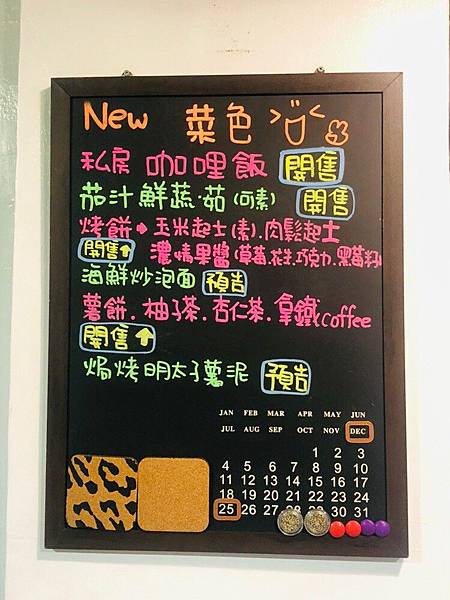 New 菜色
私房 咖哩飯 開售
茄汁 鮮蔬.茹(可素) 開售
烤餅 玉米起士(素).肉鬆起士
開售↑ 濃情果醬(草莓.花生.巧克力.黑莓籽)
海鮮炒泡面 預告
薯餅.柚子茶.杏仁茶.拿鐵(Coffee
開售↑
焗烤明太子薯泥 預告
JAN FEB MAR APR MAY JUN
JUL AUG SEP OCT NOV DEC
1 2 3
4 5 6 7 8 9 10
11 12 13 14 15 16 17
18 19 20 21 22 23 24
25 26 27 28 29 30 31